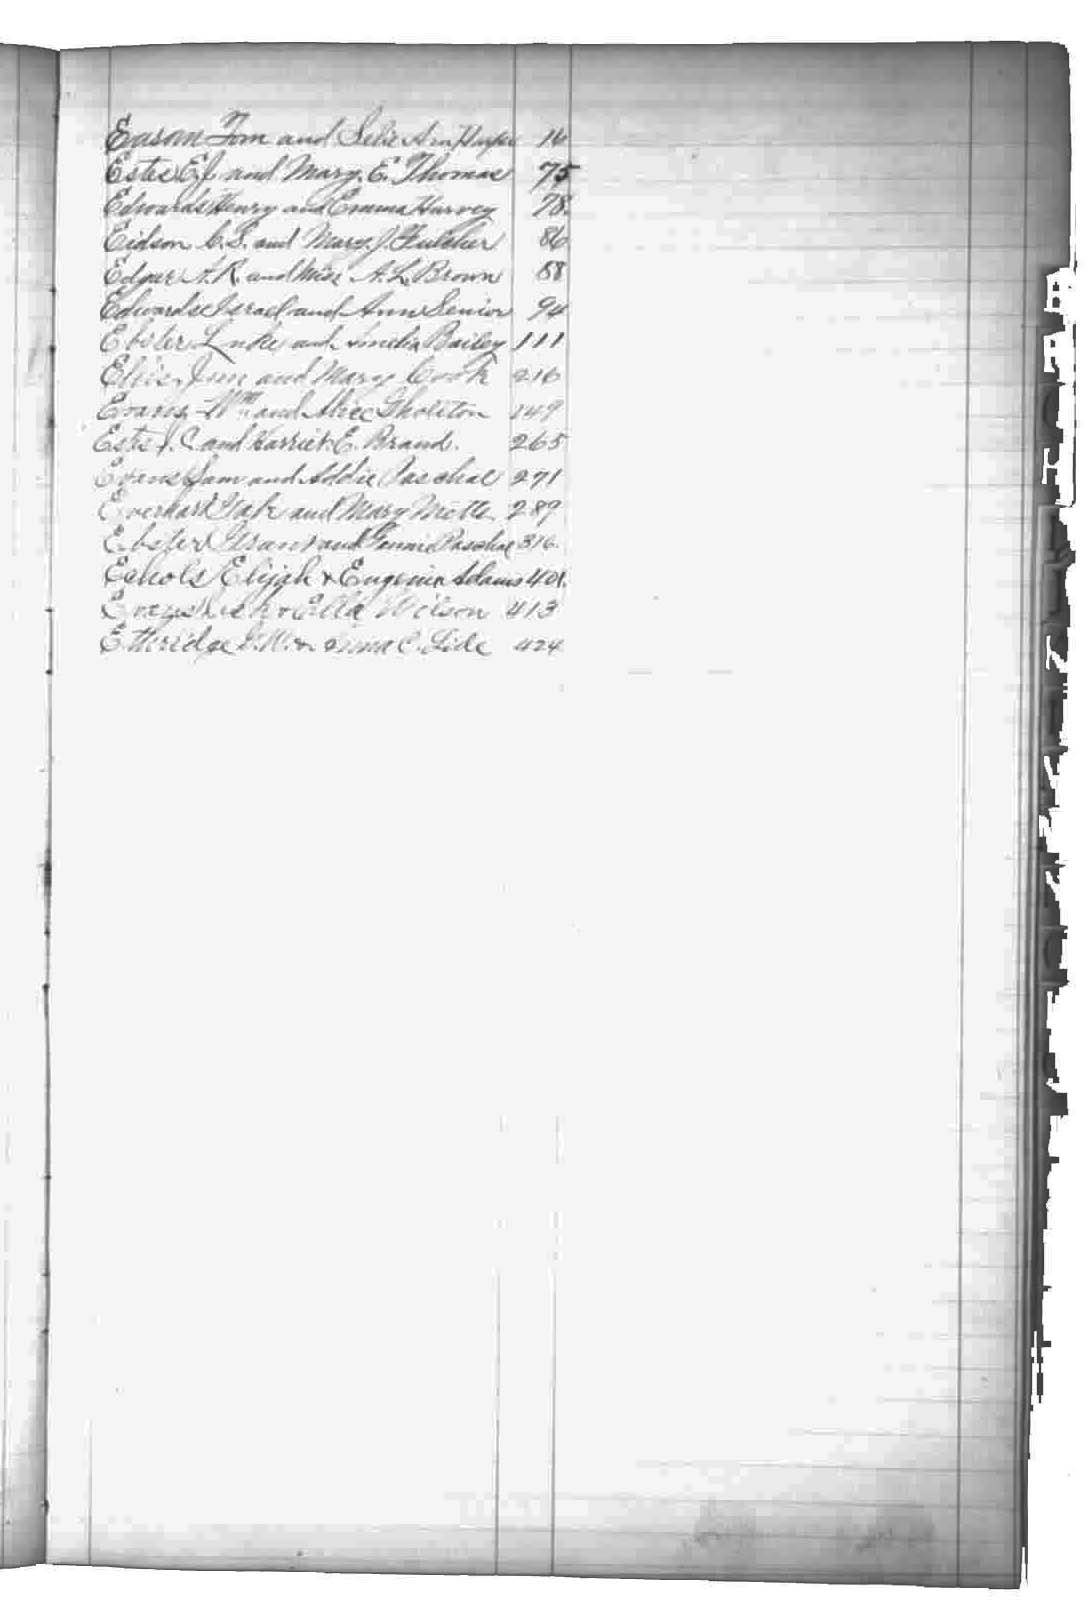 Eason Tom and Selie Ann Harper 14
Estes E.J. and Mary. E. Thomas 75
Edwards Henry and Emma Harvey 78.
Eidson C. S. and Mary. J. Fulcher 86
Edgar A. R. and Miss A. L. Brown 88
Edwards Israel and Ann Senior 94
Ebster Luke and Amelia Bailey 111
Jim and Mary Cook 216
Evans Wm. and Alice Sholston 249
Estes J. C. and Harriet E. Brand. 265
Evans Sam and Addie Paschal 271
Everhart and Mary Motte 289
Ebster Grant and Jennie Paschal 316.
Echols Elijah & Eugenia Adams 401.
Evans & Ella Wilson 413
Etheridge & Emma C. Lide 424